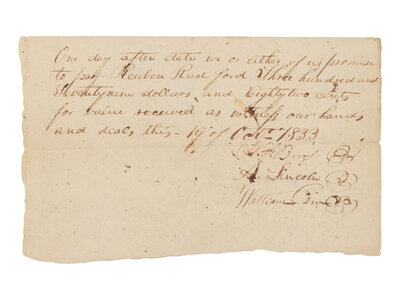 One day after date we or either of us promise
to pay Reuben Radford Three hundred and
Seventynine dollars and Eightytwo cents
for value received as witness our hands
and seals this 19th of Octr 1833.
A. Lincoln
William